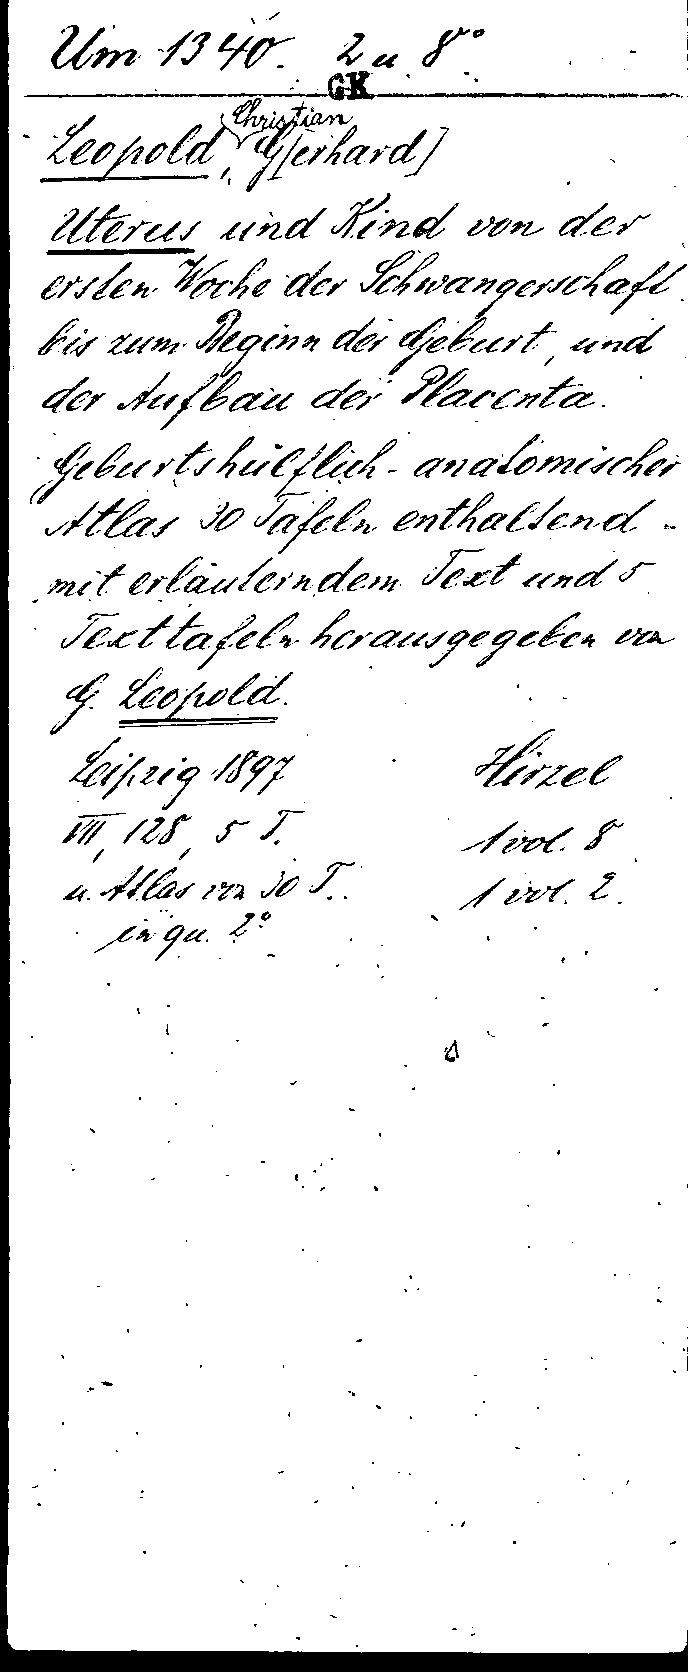 Um 1340. 2 u 8°
GK
Christian
Leopold, G[erhard]
Uterus und Kind von der
ersten Woche der Schwangerschaft
bis zum Beginn der Geburt, und
der Aufbau der Placenta.
Geburtshülflich-anatomischer
Atlas 30 Tafeln enthaltend -
mit erläuterndem Text und 5
Texttafeln herausgegeben von
G. Leopold.
Leipzig 1897 Hirzel
VII, 128, 5 T. 1 vol. 8
u. Atlas von 30 T. 1 vol. 2.
in qu. 2°